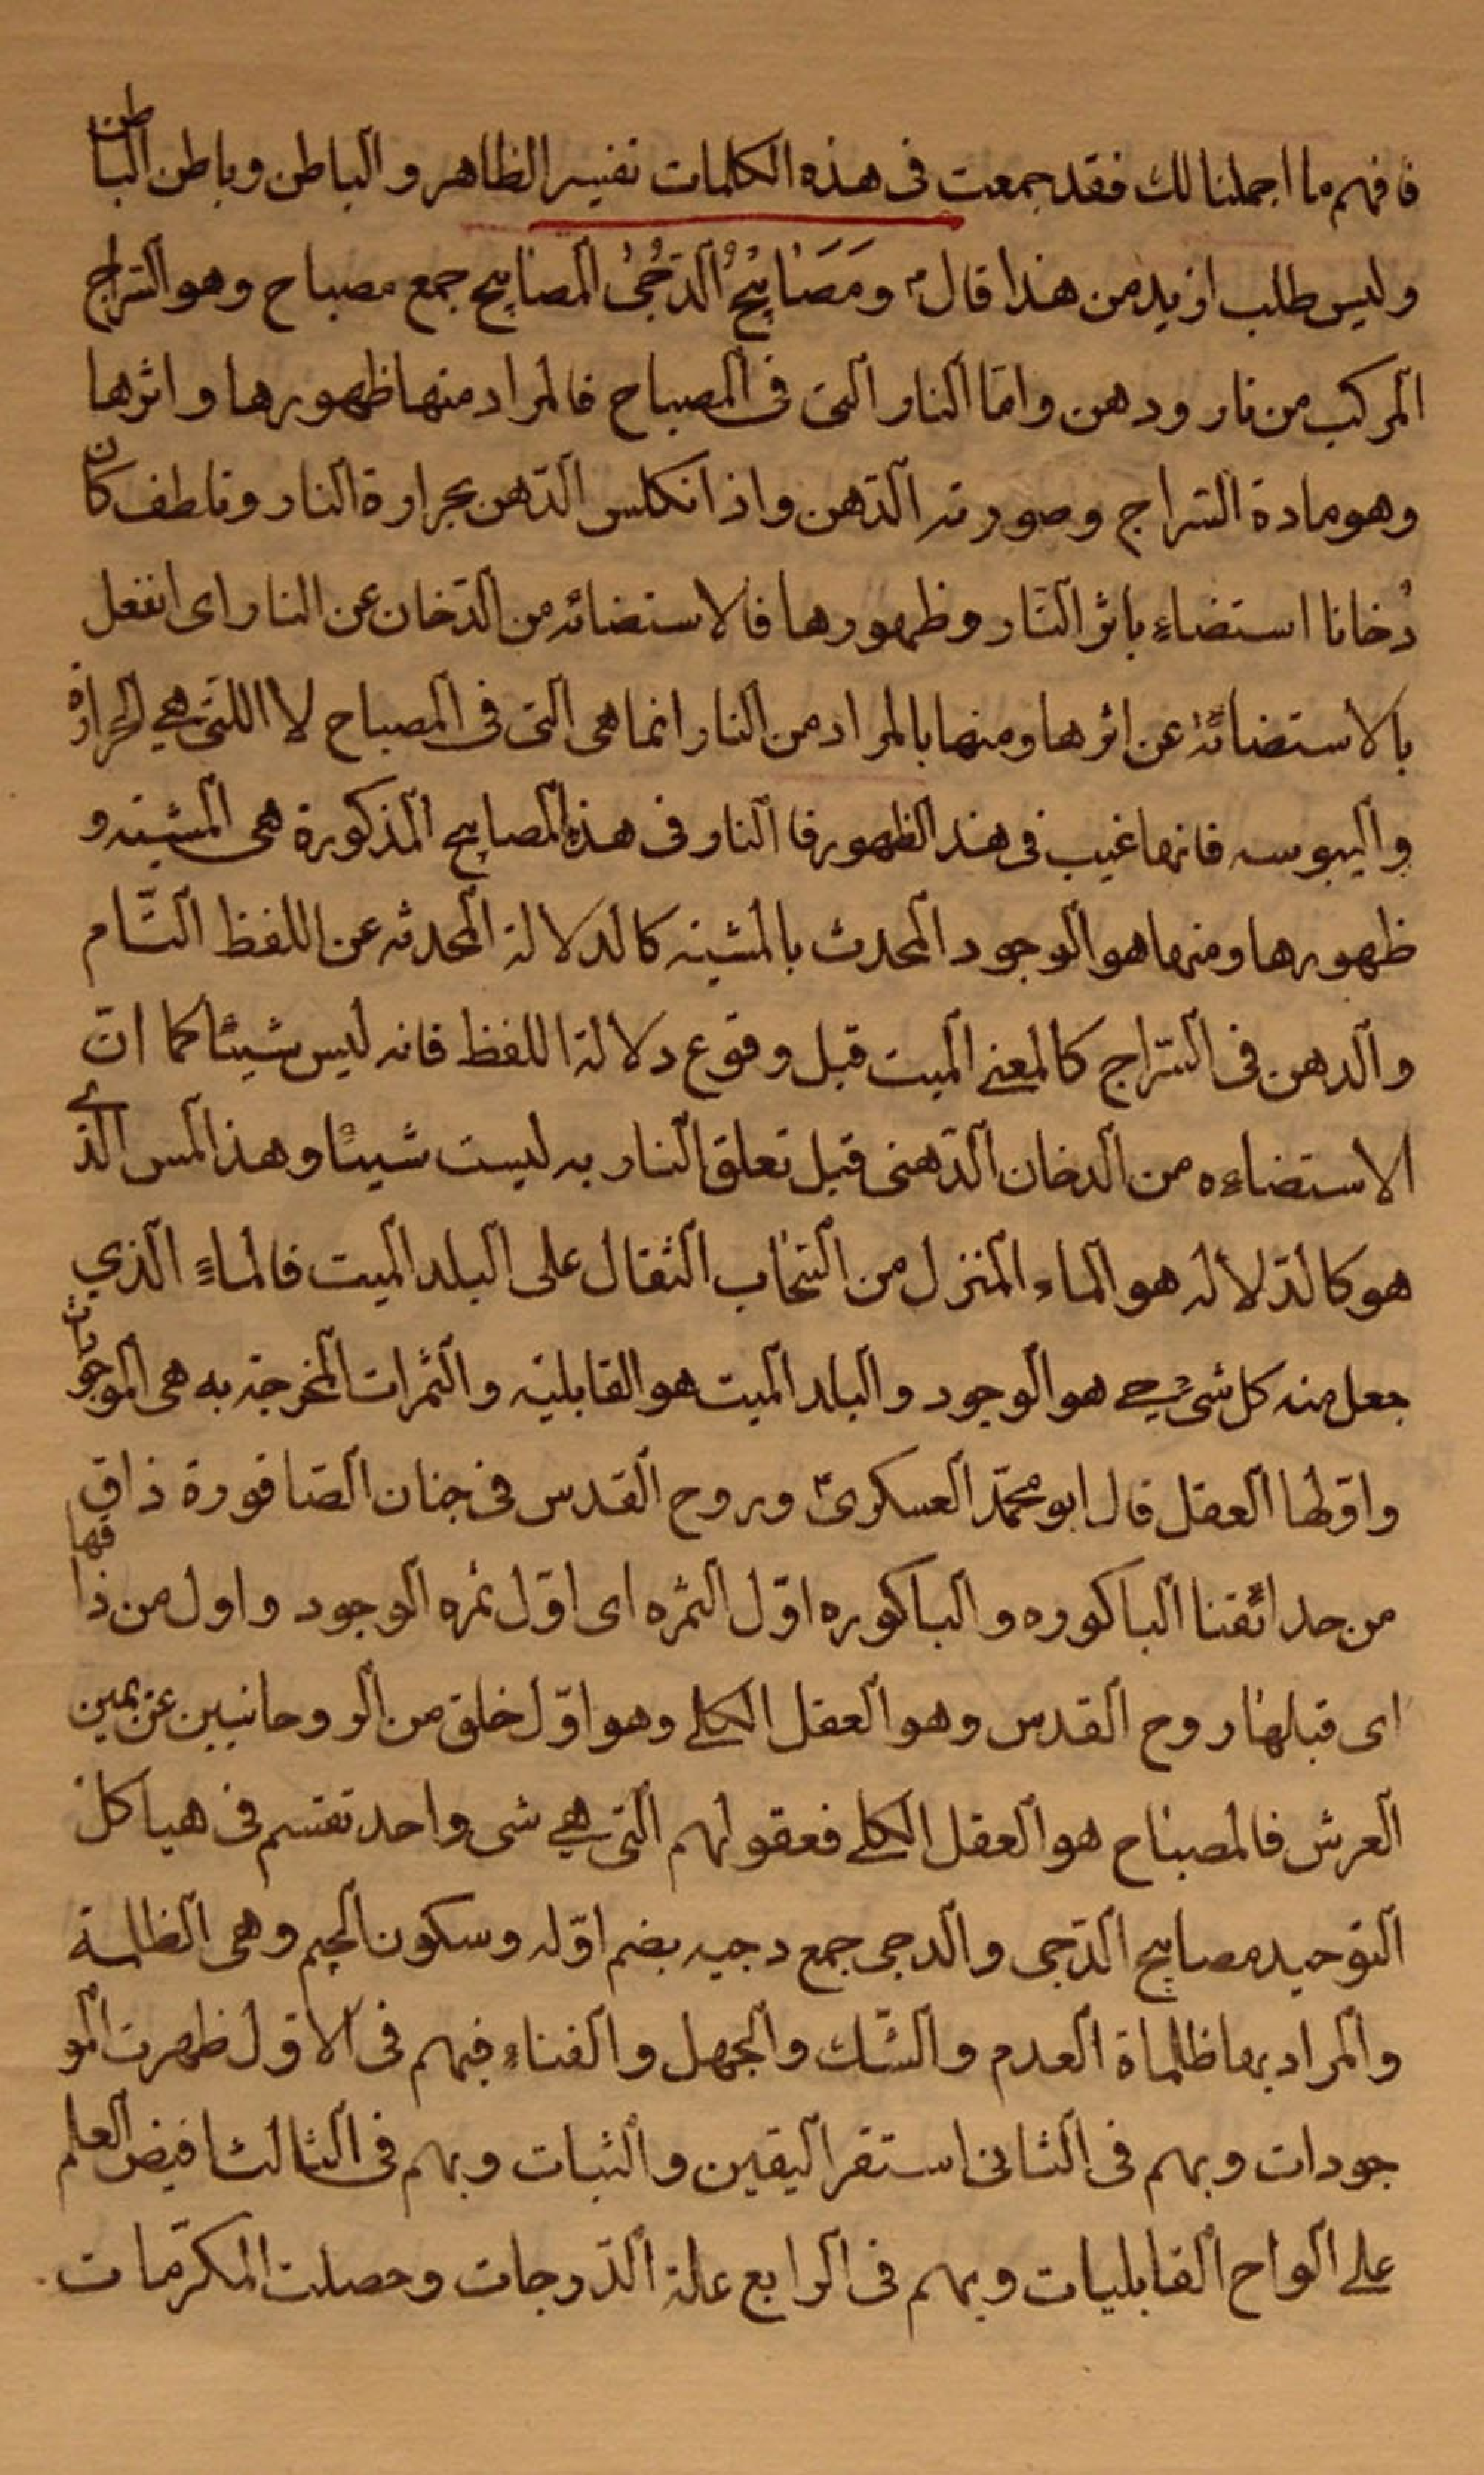 فافهم ما اجملنا لك فقد جمعت فى هذه الكلمات تفسير الظاهر و الباطن و باطن الباطن
وليس طلب ازيد من هذا قال؟ ومَصَابِيْحُ الدّجُىٰ المصابيح جمع مصباح وهو السّراج
المركب من نار و دهن و امّا النار التى فى المصباح فالمراد منها ظهورها و اثرها
وهو مادة السّراج و صورته الدّهن و اذا نكلس الدّهن بحرارة النار و تلطف كان
دُخانا استضاء باثر النّار و ظهورها فالاستضائه من الدّخان عن النار اى انفعل
بالاستضائة عن اثرها و منها بالمراد من النار انما هى التى فى المصباح لا اللتى هي الحرارة
و اليبوسه فانها غيب فى هذ الظهور فا النار فى هذه المصابيح المذكورة هى المشيته و
ظهورها و منها هو الوجود المحدث بالمشيته كالدلالة المحدثه عن اللفظ التّام
و الدهن فى السّراج كالمعنے الميت قبل وقوع دلالة اللفظ فانه ليس شيئًا كما انّ
الاستضاءه من الدخان الدّهنى قبل تعلق النار به ليست شيئًا و هذ المس الذے
هو كالدّلاله هو الماء المنزل من السّحاب الثقال على البلد الميت فالماء الذي
جعل منه كل شىء حے هو الوجود و البلد الميت هو القابليّه و الثمرات المخرجة به هى الموجودات
و اوّلها العقل قال ابو محمّد العسكرىؑ و روح القدس فى جنان الصّاقورة ذاق
من حدائقنا الباكوره و الباكوره اوّل الثمره اى اوّل ثمره الوجود و اول من ذاقها
اى قبلها روح القدس و هو العقل الكلے و هو اوّل خلق من الروحانيين عن يمين
العرش فالمصباح هو العقل الكلے فعقولهم التى هے شى واحد تقسم فى هياكل
التوحيد مصابيح الدّجى و الدجى جمع دجيه بضم اوّله و سكون الجيم و هى الظلمة
و المراد بها ظلماة العدم و الشّك و الجهل و الفناء فبهم فى الاوّل ظهرت المو
جودات و بهم فى الثانى استقر اليقين و الثبات و بهم فى الثالث افيض العلم
علے الواح القابليات و بهم فى الرابع علة الدّرجات و حصلت المكرّمات